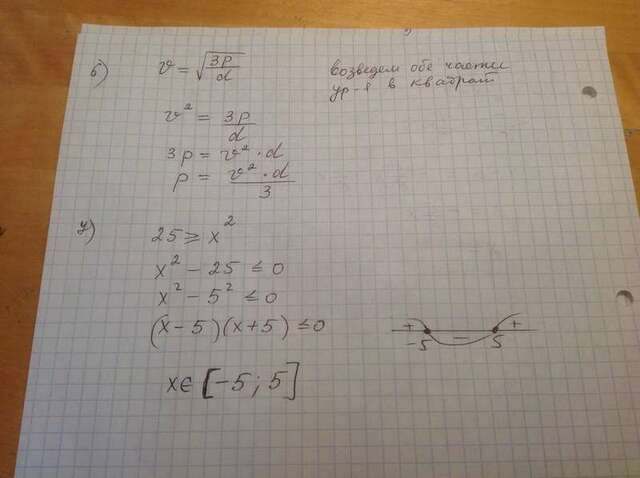 б) v = √(3p/d) Возведем обе части
ур-я в квадрат
v² = 3p/d
3p = v² · d
p = v² · d / 3
у) 25 ⩾ x²
x² - 25 ⩽ 0
x² - 5² ⩽ 0
(x-5)(x+5) ⩽ 0 + -5 - 5 +
x ∈ [-5; 5]